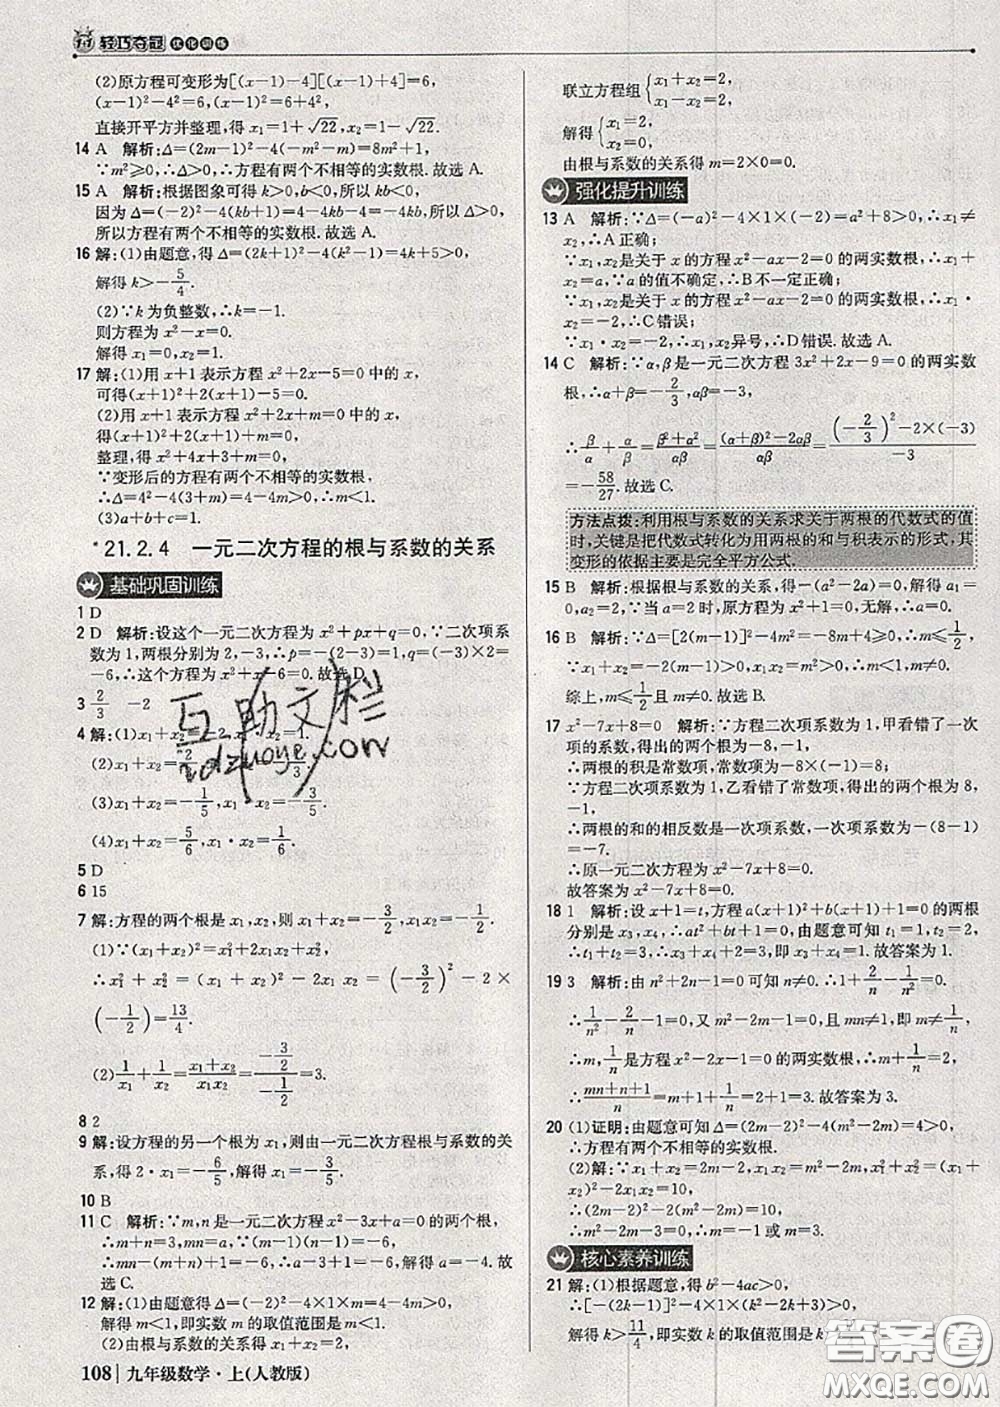 1+1 轻巧夺冠 优化训练
(2)原方程可变形为[(x-1)-4][(x-1)+4]=6,
(x-1)²-4²=6,(x-1)²=6+4²,
直接开平方并整理,得 x₁=1+√22,x₂=1-√22.
14 A 解析:Δ=(2m-1)²-4(-m²-m)=8m²+1,
∵m²≥0,∴Δ>0,∴方程有两个不相等的实数根.故选 A.
15 A 解析:根据图象可得 k>0,b<0,所以 kb<0,
因为 Δ=(-2)²-4(kb+1)=4-4kb-4=-4kb>0,所以Δ>0,
所以方程有两个不相等的实数根.故选 A.
16 解:(1)由题意,得 Δ=(2k+1)²-4(k²-1)=4k+5>0,
解得 k>-5/4.
(2)∵k 为负整数,∴k=-1.
则方程为 x²-x=0.
解得 x₁=0,x₂=1.
17 解:(1)用 x+1 表示方程 x²+2x-5=0 中的 x,
可得(x+1)²+2(x+1)-5=0.
(2)用 x+1 表示方程 x²+2x+m=0 中的 x,
得(x+1)²+2(x+1)+m=0.
整理,得 x²+4x+3+m=0.
∵变形后的方程有两个不相等的实数根,
∴Δ=4²-4(3+m)=4-4m>0,∴m<1.
(3)a+b+c=0.
*21.2.4 一元二次方程的根与系数的关系
基础巩固训练
1 D
2 D 解析:设这个一元二次方程为 x²+px+q=0,∵二次项系
数为 1,两根分别为 2,-3,∴p=-(2-3)=1,q=(-3)×2=
-6,∴这个方程为 x²+x-6=0.故选 D.
3 2/3 -2
4 解:(1)x₁+x₂=
(2)x₁+x₂=
(3)x₁+x₂=-1/5,x₁·x₂=-3/5.
(4)x₁+x₂=5/6,x₁·x₂=1/6.
5 D
6 15
7 解:方程的两个根是 x₁,x₂,则 x₁+x₂=-3/2,x₁x₂=-1/2.
(1)∵(x₁+x₂)²=x₁²+2x₁x₂+x₂²,
∴x₁²+x₂²=(x₁+x₂)²-2x₁x₂=(-3/2)²-2×
(-1/2)=13/4.
(2)1/x₁+1/x₂=(x₁+x₂)/(x₁x₂)=(-3/2)/(-1/2)=3.
8 2
9 解:设方程的另一个根为 x₁,则由一元二次方程根与系数的关
系,得 2·x₁=-6/5,解得 x₁=-3/5.
10 B
11 C 解析:∵m,n是一元二次方程 x²-3x+a=0 的两个根,
∴m+n=3,mn=a.∵(m-1)(n-1)=-6,
∴mn-(m+n)+1=-6,∴a-3+1=-6,解得 a=-4.故
选 C.
12 解:(1)由题意得 Δ=(-2)²-4×1×m=4-4m>0,
解得 m<1,即实数 m 的取值范围是 m<1.
(2)由根与系数的关系得 x₁+x₂=2,
联立方程组{x₁+x₂=2,
x₁-x₂=2,
解得{x₁=2,
x₂=0,
由根与系数的关系得 m=2×0=0.
强化提升训练
13 A 解析:∵Δ=(-a)²-4×1×(-2)=a²+8>0,∴x₁≠
x₂,∴A 正确;
∵x₁,x₂是关于 x 的方程 x²-ax-2=0 的两实数根,∴x₁+
x₂=a,∵a 的值不确定,∴B不一定正确;
∵x₁,x₂是关于 x 的方程 x²-ax-2=0 的两实数根,∴x₁·
x₂=-2,∴C 错误;
∵x₁·x₂=-2,∴x₁,x₂异号,∴D错误.故选 A.
14 C 解析:∵α,β是一元二次方程 3x²+2x-9=0 的两实数
根,∴α+β=-2/3,αβ=-3,
∴β/α+α/β=(β²+α²)/αβ=((α+β)²-2αβ)/αβ=((-2/3)²-2×(-3))/-3
=-58/27.故选 C.
方法点拨:利用根与系数的关系求关于两根的代数式的值
时,关键是把代数式转化为用两根的和与积表示的形式,其
变形的依据主要是完全平方公式.
15 B 解析:根据根与系数的关系,得-(a²-2a)=0,解得 a₁=
0,a₂=2,∵当 a=2 时,原方程为 x²+1=0,无解,∴a=0.
16 B 解析:∵Δ=[2(m-1)]²-4m²=-8m+4≥0,∴m≤1/2,
∵x₁+x₂=-2(m-1)>0,x₁x₂=m²>0,∴m<1,m≠0.
综上,m≤1/2且 m≠0.故选 B.
17 x²-7x+8=0 解析:∵方程二次项系数为 1,甲看错了一次
项的系数,得出的两个根为-8,-1,
∴两根的积是常数项,常数项为-8×(-1)=8;
∵方程二次项系数为 1,乙看错了常数项,得出的两个根为
8,-1.
∴两根的和的相反数是一次项系数,一次项系数为-(8-1)
=-7.
∴原一元二次方程为 x²-7x+8=0.
故答案为 x²-7x+8=0.
18 1 解析:设 x+1=t,方程 a(x+1)²+b(x+1)+1=0 的两根
分别是 x₃,x₄,∴at²+bt+1=0,由题意可知 t₁=1,t₂=2,
∴t₁+t₂=3,∴x₃+x₄+2=3,即 x₃+x₄=1.故答案为 1.
19 3 解析:由 n²+2n-1=0 可知 n≠0.∴1+2/n-1/n²=0.
∴1/n²-2/n-1=0,又 m²-2m-1=0,且 mn≠1,即 m≠1/n.
∴m,1/n是方程 x²-2x-1=0 的两实数根,∴m+1/n=2,
∴(mn+n+1)/n=m+1+1/n=2+1=3.故答案为 3.
20 (1)证明:由题意可知 Δ=(2m-2)²-4(m²-2m)=4>0,
∴方程有两个不相等的实数根.
(2)解:∵x₁+x₂=2m-2,x₁x₂=m²-2m,x₁²+x₂²=(x₁+
x₂)²-2x₁x₂=10,∴(2m-2)²-2(m²-2m)=10,
∴m²-2m-3=0,∴m=-1 或 m=3.
核心素养训练
21 解:(1)根据题意,得 b²-4ac>0,
∴[-(2k-1)]²-4×1×(k²-2k+3)>0,
解得 k>11/4,即实数 k 的取值范围是 k>
108 九年级数学·上(人教版)
互助文档
hdzuoye.com
答案圈
MXQE.COM